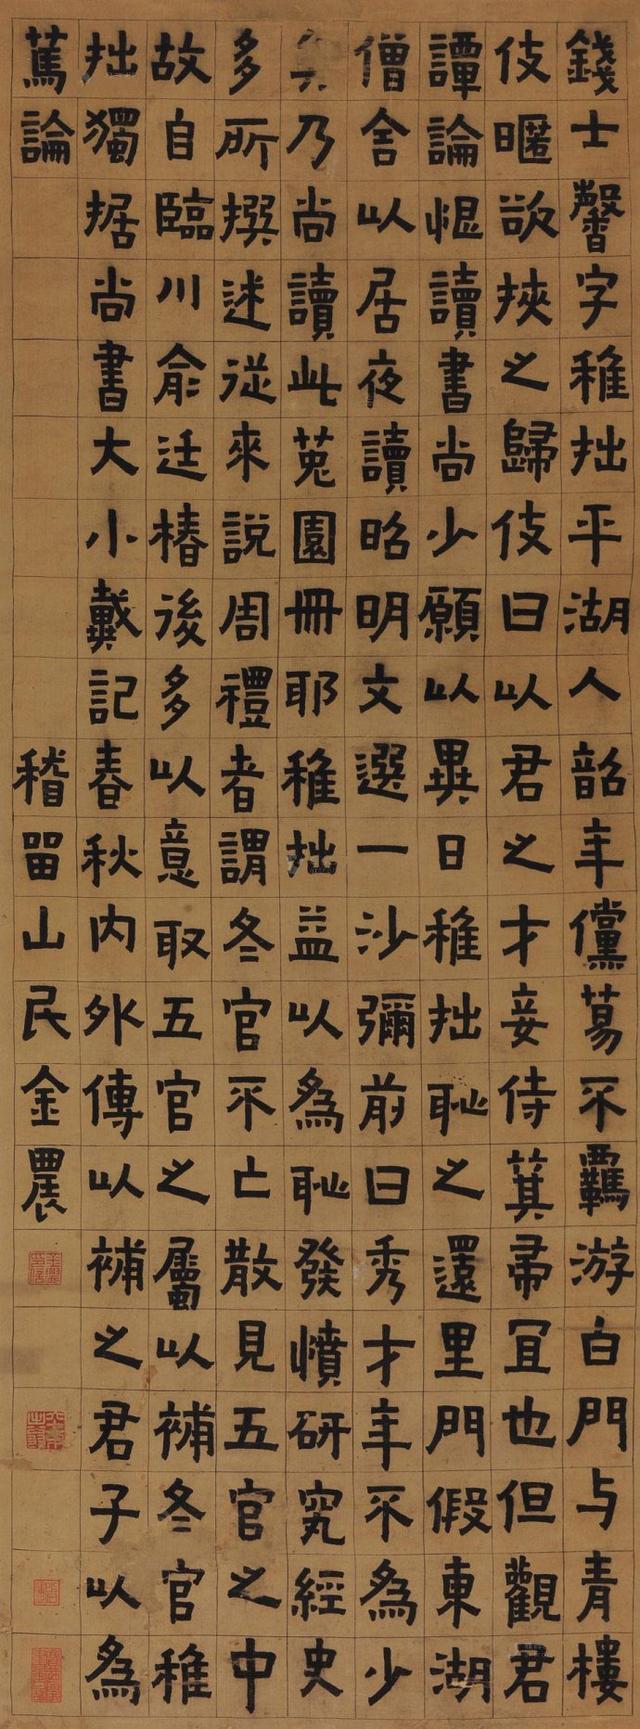 錢士馨字稚拙平湖人韶年儻蕩不羈游白門与青樓
伎暱欲挾之歸伎曰以君之才妾侍萁帚宜也但觀君
譚論恨讀書尚少願以異日稚拙恥之還里門假東湖
僧舍以居夜讀昭明文選一沙彌前曰秀才年不為少
矣乃尚讀此菟園冊耶稚拙益以為恥發憤研究經史
多所撰述從來說周禮者謂冬官不亡散見五官之中
故自臨川俞廷椿後多以意取五官之屬以補冬官稚
拙獨据尚書大小戴記春秋內外傳以補之君子以為
篤論
稽留山民金農